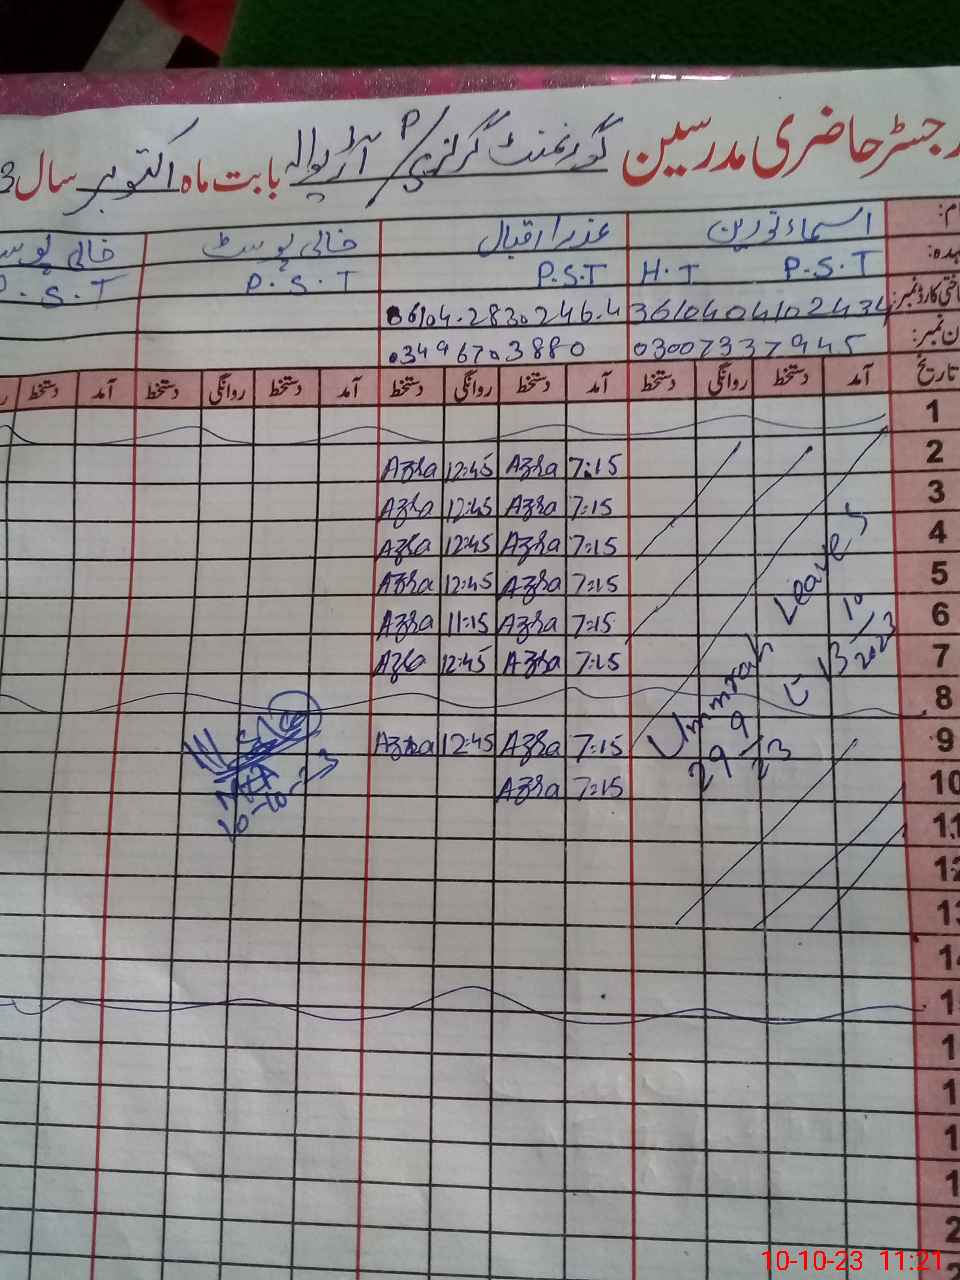 رجسٹر حاضری مدرسین گورنمنٹ گرلز پی/P آڑیوالہ بابت ماہ اکتوبر سال 3
اسماء نورین عذرا اقبال خالی پوسٹ خالی پوسٹ
H.T P.S.T P.S.T P.S.T P.S.T
3610404102434 36104.2830246.4
03007337945 03496703880
تاریخ آمد دستخط روانگی دستخط آمد دستخط روانگی دستخط آمد دستخط روانگی دستخط آمد دستخط
1
2 7:15 Azra 12:45 Azra
3 7:15 Azra 12:45 Azra
4 7:15 Azra 12:45 Azra
5 7:15 Azra 12:45 Azra
6 7:15 Azra 11:15 Azra
7 7:15 Azra 12:45 Azra
8
9 7:15 Azra 12:45 Azra
10 7:15 Azra
Ummrah Leaves
29/9/23 تا 13/10/2023
10-10-23
11
12
13
14
10-10-23 11:21